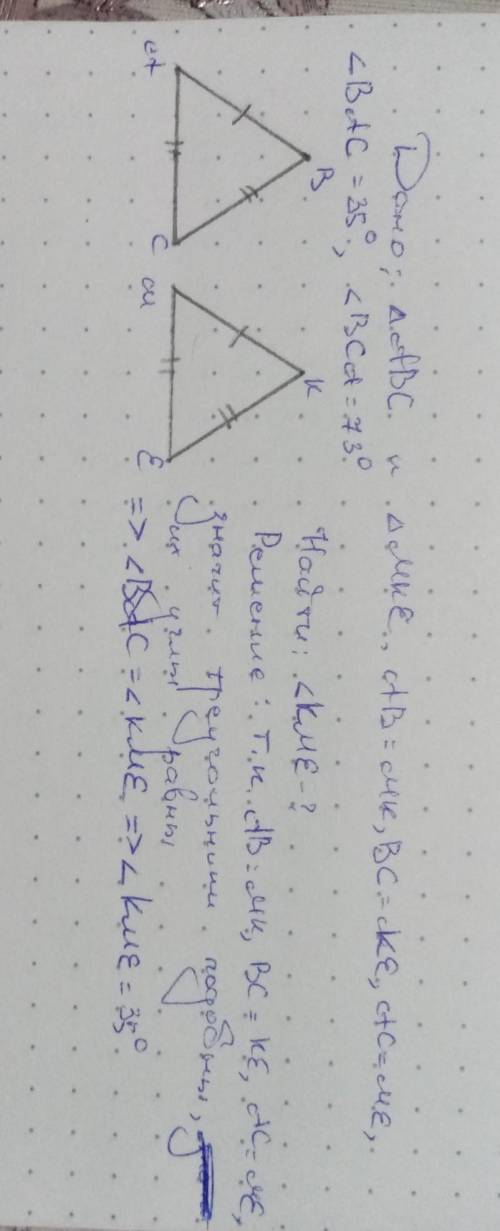 Дано: △ABC и △MKE, AB=MK, BC=KE, AC=ME,
∠BAC=35°, ∠BCA=73°
B
A
C
K
M
E
Найти: ∠KME-?
Решение: т.к. AB=MK, BC=KE, AC=ME,
значит треугольники подобны,
их углы равны
=> ∠BAC=∠KME => ∠KME=35°